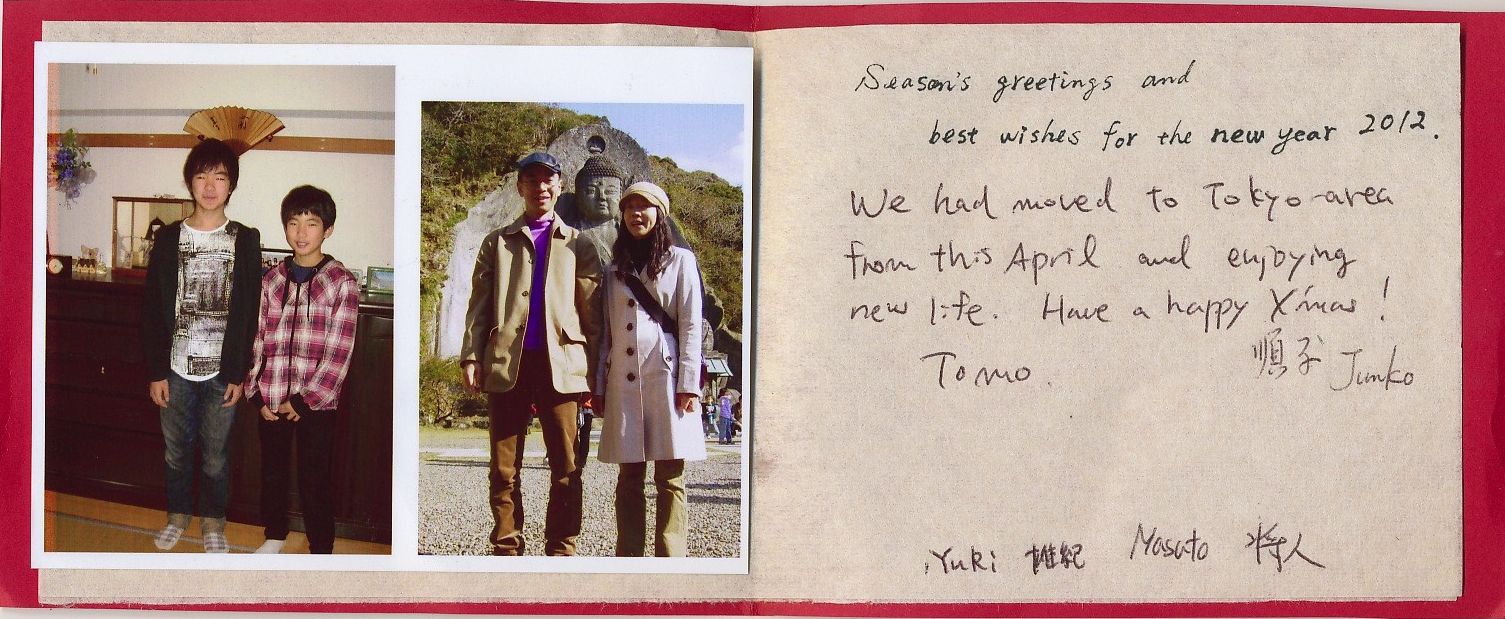 Season's greetings and
best wishes for the new year 2012.
We had moved to Tokyo-area
from this April and enjoying
new life. Have a happy X'mas!
Tomo. 順子 Junko
Yuki 雄紀 Masato 将人